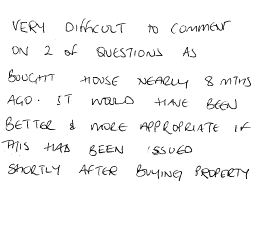 VERY DIFFICULT to COMMENT
ON 2 of QUESTIONS AS
BOUGHT HOUSE NEARLY 8 MTHS
AGO. IT WOULD HAVE BEEN
BETTER & MORE APPROPRIATE IF
THIS HAD BEEN ISSUED
SHORTLY AFTER BUYING PROPERTY